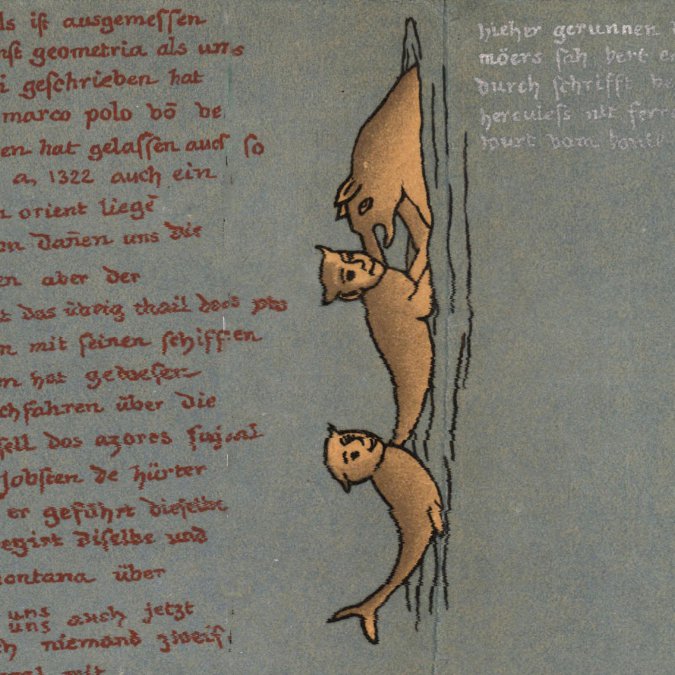 ls ist ausgemessen
nst geometria als uns
i geschrieben hat
marco polo vō ve
en hat gelassen auch so
a, 1322 auch ein
n orient liegē
on dañen uns die
en aber der
t das übrig thail
n mit seinen schiffen
m hat gewesen
chfahren über die
sell dos azores
Jobsten de hürter
er geführt dieselbe
regirt diselbe und
ontana über
uns
uns auch jetzt
ch niemand zweif
mit
hieher gerunnen
möers sah
durch schrifft
hercules nit ferr
wurt vom